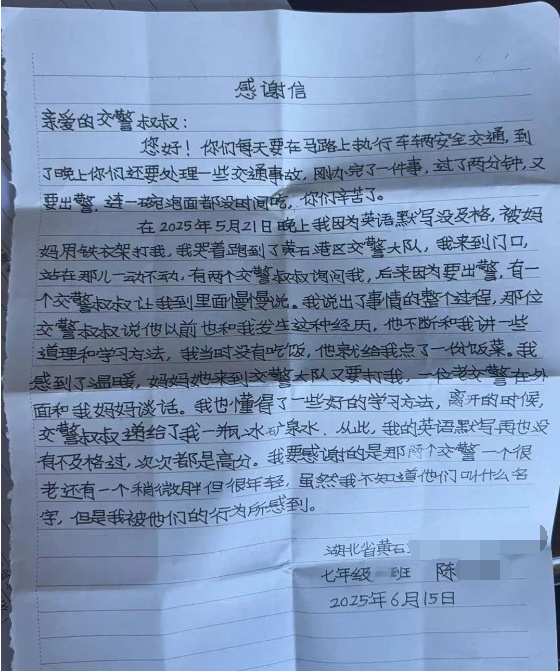 感谢信
亲爱的交警叔叔：
您好！你们每天要在马路上执行车辆安全交通，到
了晚上你们还要处理一些交通事故，刚办完了一件事，过了两分钟，又
要出警，连一碗泡面都没时间吃，你们辛苦了。
在2025年5月21日晚上我因为英语默写没及格，被妈
妈用铁衣架打我，我哭着跑到了黄石港区交警大队，我来到门口，
站在那儿一动不动，有两个交警叔叔询问我，后来因为要出警，有一
个交警叔叔让我到里面慢慢说。我说出了事情的整个过程，那位
交警叔叔说他以前也和我发生这种经历，他不断和我讲一些
道理和学习方法，我当时没有吃饭，他就给我点了一份饭菜。我
感到了温暖，妈妈她来到交警大队又要打我，一位老交警在外
面和我妈妈谈话。我也懂得了一些好的学习方法，离开的时候，
交警叔叔递给了我一瓶冰矿泉水、从此，我的英语默写再也没
有不及格过，次次都是高分。我要感谢的是那两个交警一个很
老还有一个稍微胖但很年轻，虽然我不知道他们叫什么名
字，但是我被他们的行为所感到。
湖北省黄石
七年级 班 陈
2025年6月15日